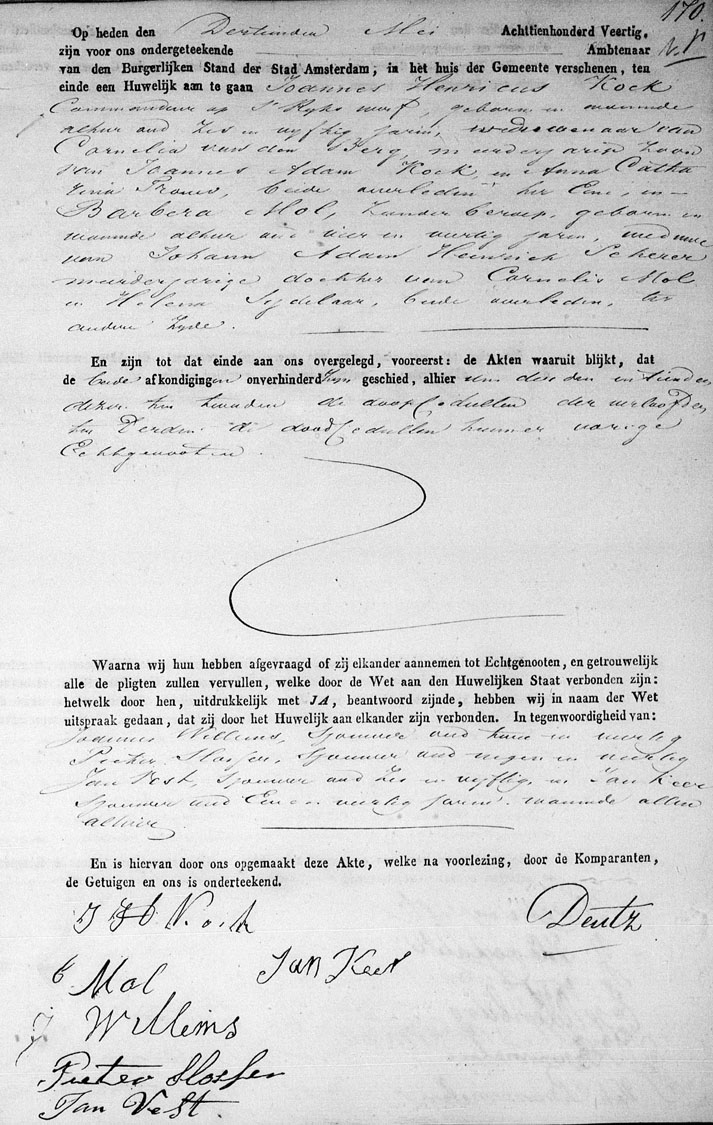 170.
Op heden den Dertienden Mei Achttienhonderd Veertig,
zijn voor ons ondergeteekende Ambtenaar
van den Burgerlijken Stand der Stad Amsterdam, in het huis der Gemeente verschenen, ten
einde een Huwelijk aan te gaan Joannes Henricus Kock
Commandeur op 's Ryks werf, geboren en woonende
alhier oud Zes en vyftig jaren, weduwenaar van
Cornelia van den Berg, meerderjarige Zoon
van Joannes Adam Kock, en Anna Catha
rina Troues, beide overleden ter Eene, en
Barbera Mol, Zonder beroep, geboren en
woonende alhier oud vier en veertig jaren, weduwe
van Johann Adam Heinrich Scherer
meerderjarige dochter van Cornelis Mol
en Helena Sydelaar, beide overleden, ter
andere Zyde.
En zijn tot dat einde aan ons overgelegd, vooreerst: de Akten waaruit blijkt, dat
de beide afkondigingen onverhinderd zyn geschied, alhier den derden en tienden
dezer ten tweeden de doopcedullen der verloofden
ten Derden de doodcedullen hunner vorige
Echtgenooten.
Waarna wij hun hebben afgevraagd of zij elkander aannemen tot Echtgenooten, en getrouwelijk
alle de pligten zullen vervullen, welke door de Wet aan den Huwelijken Staat verbonden zijn:
hetwelk door hen, uitdrukkelijk met JA, beantwoord zijnde, hebben wij in naam der Wet
uitspraak gedaan, dat zij door het Huwelijk aan elkander zijn verbonden. In tegenwoordigheid van:
Joannes Willems, Sjouwer oud twee en veertig
Pieter Slosser, Sjouwer oud negen en veertig
Jan Vest, Sjouwer oud Zes en vyftig, en Jan Keer
Sjouwer oud Een en veertig jaren. woonende allen
alhier
En is hiervan door ons opgemaakt deze Akte, welke na voorlezing, door de Komparanten,
de Getuigen en ons is onderteekend.
J H Kock
Deutz
B Mol
Jan Keer
J Willems
Pieter Slosser
Jan Vest.